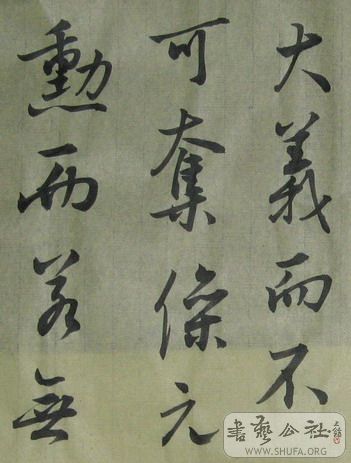 大義而不
可奪保元
勳而若無
書藝公社
WWW.SHUFA.ORG